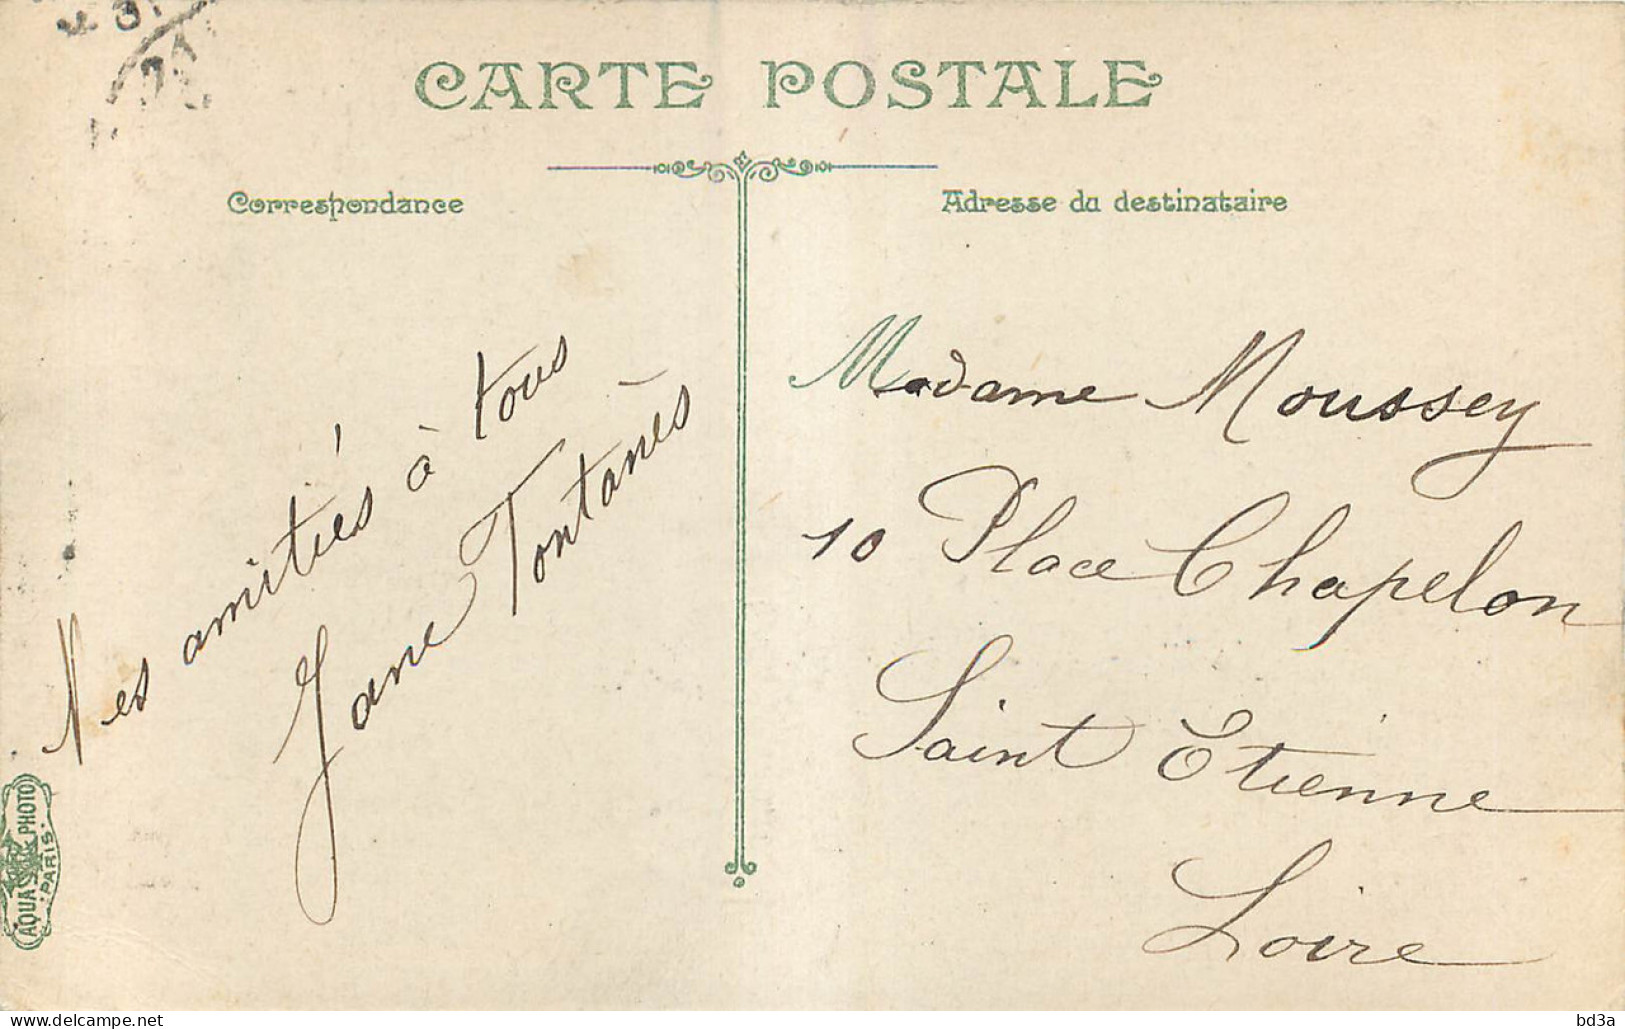 CARTE POSTALE
Correspondance
Adresse du destinataire
Mes amitiés à tous
Jane Fontanès
Madame Moussey
10 Place Chapelon
Saint Etienne
Loire
AQUA PHOTO
PARIS
delcampe.net
bd3a